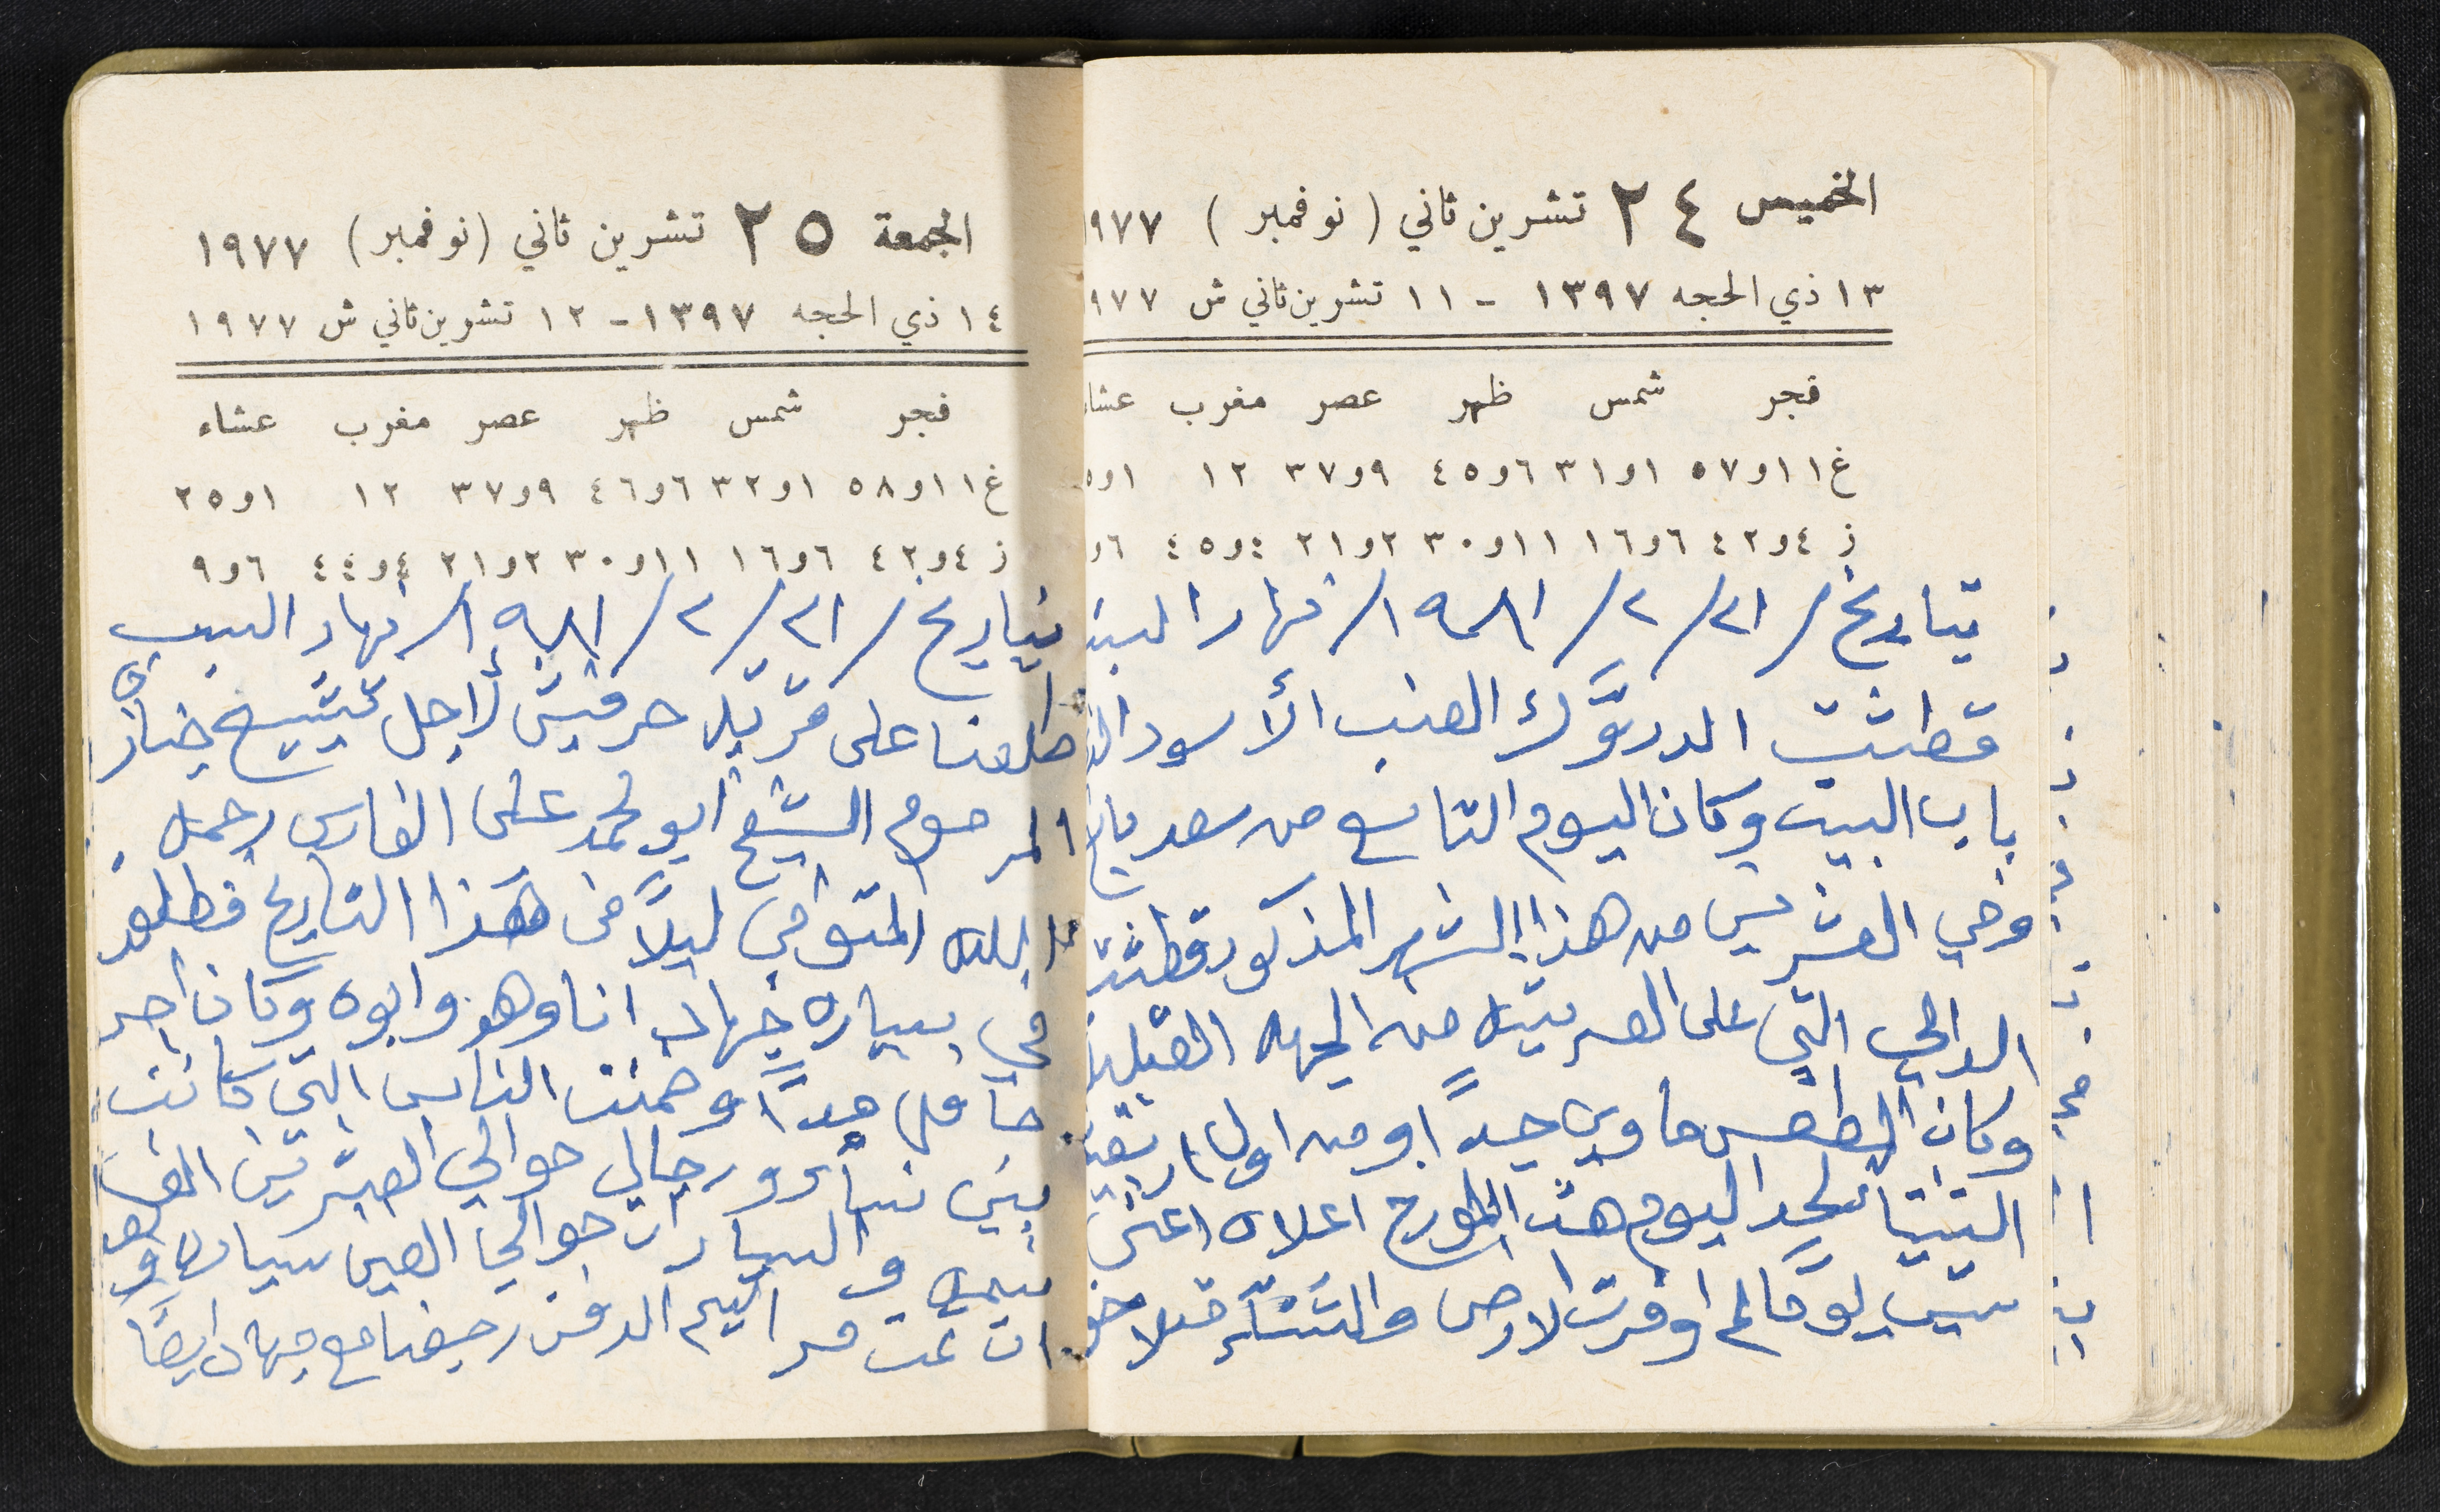 الخميس ٢٤ تشرين ثاني ( نوفمبر ) ١٩٧٧
١٣ ذي الحجه ١٣٩٧ - ١١ تشرين ثاني ش ٩٧٧
فجر شمس ظهر عصر مغرب عشاء
غ ١١و٥٧ ١و٣١ ٦و٤٥ ٩و٣٧ ١٢ ١و
ز ٤و٤٢ ٦و١٦ ١١و٣٠ ٢و٢١ ٤و٤٥ ٦و
بتاريخ / ٢١ / ٢ / ١٩٨١ / نهار السبت
قطشت الدروَّك العنب الأسود
باب البيت وكان اليوم التاسع من سعد بلع
وفي العشرين من هذا الشهر المذكور قطشت
الدوالي التي على العريشه من الجهه القبليه
وكان الطقس ماوي جيداً ومن اول اربعين
الشتاء لحد اليوم هذ المورخ اعلاه اعني
سبت لوَّمالم اوفرت الارض والشتاء قلا
الجمعة ٢٥ تشرين ثاني (نوفمبر) ١٩٧٧
١٤ ذي الحجه ١٣٩٧ - ١٢ تشرين ثاني ش ١٩٧٧
فجر شمس ظهر عصر مغرب عشاء
غ ١١و٥٨ ١و٣٢ ٦و٤٦ ٩و٣٧ ١٢ ١و٢٥
ز ٤و٤٢ ٦و١٦ ١١و٣٠ ٢و٢١ ٤و٤٤ ٦و٩
بتاريخ / ٢١ / ٢ / ١٩٨١ / نهار السبت
طلعنا على قريّة حرفيش لأجل تشييع جنازة
المرحوم الشيخ ابو محمد علي الفارس رحمه
الله المتوفي ليلاً في هذا التاريخ فطلعة
في سياره جهاد انا وهو وابوه وكان اجر
حافل جداً وضمنت الناس التي كانت
بين نساء ورجال حوالي العشرين الف
نسمه و السيارات حوالي الفين سياره و
ان تمت مراسيم الدفن رجعنا مع جهاد ايضاً